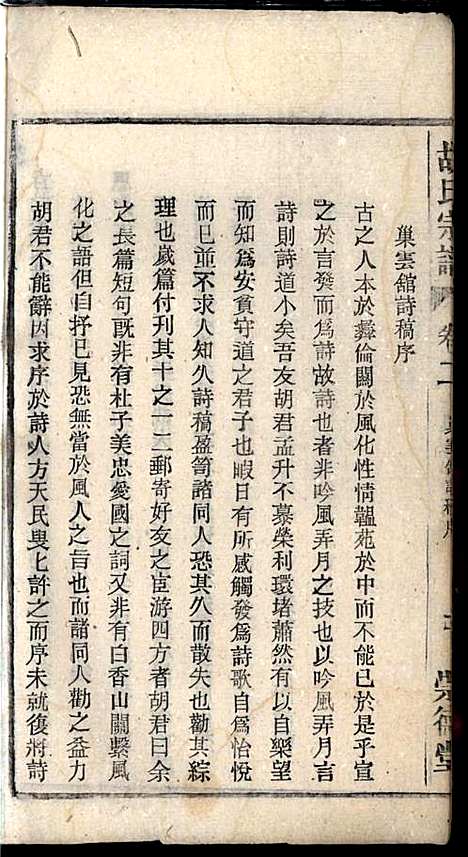 巢雲館詩稿序
古之人本於彝倫關於風化性情韞菀於中而不能已於是乎宣
之於言發而爲詩故詩也者非吟風弄月之技也以吟風弄月言
詩則詩道小矣吾友胡君孟升不慕榮利環堵蕭然有以自樂望
而知爲安貧守道之君子也暇日有所感觸發爲詩歌自爲怡悅
而已並不求人知久詩稿盈笥諸同人恐其久而散失也勸其綜
理也歲篇付刊其十之一二郵寄好友之臣游四方者胡君曰余
之長篇短句旣非有杜子美忠愛國之詞又非有白香山關繫風
化之語但自抒已見恐無當於風人之旨也而諸同人勸之益力
胡君不能辭因求序於詩人方天民叟上許之而序未就復將詩
胡氏宗譜 卷二 巢雲館詩稿序 崇德堂